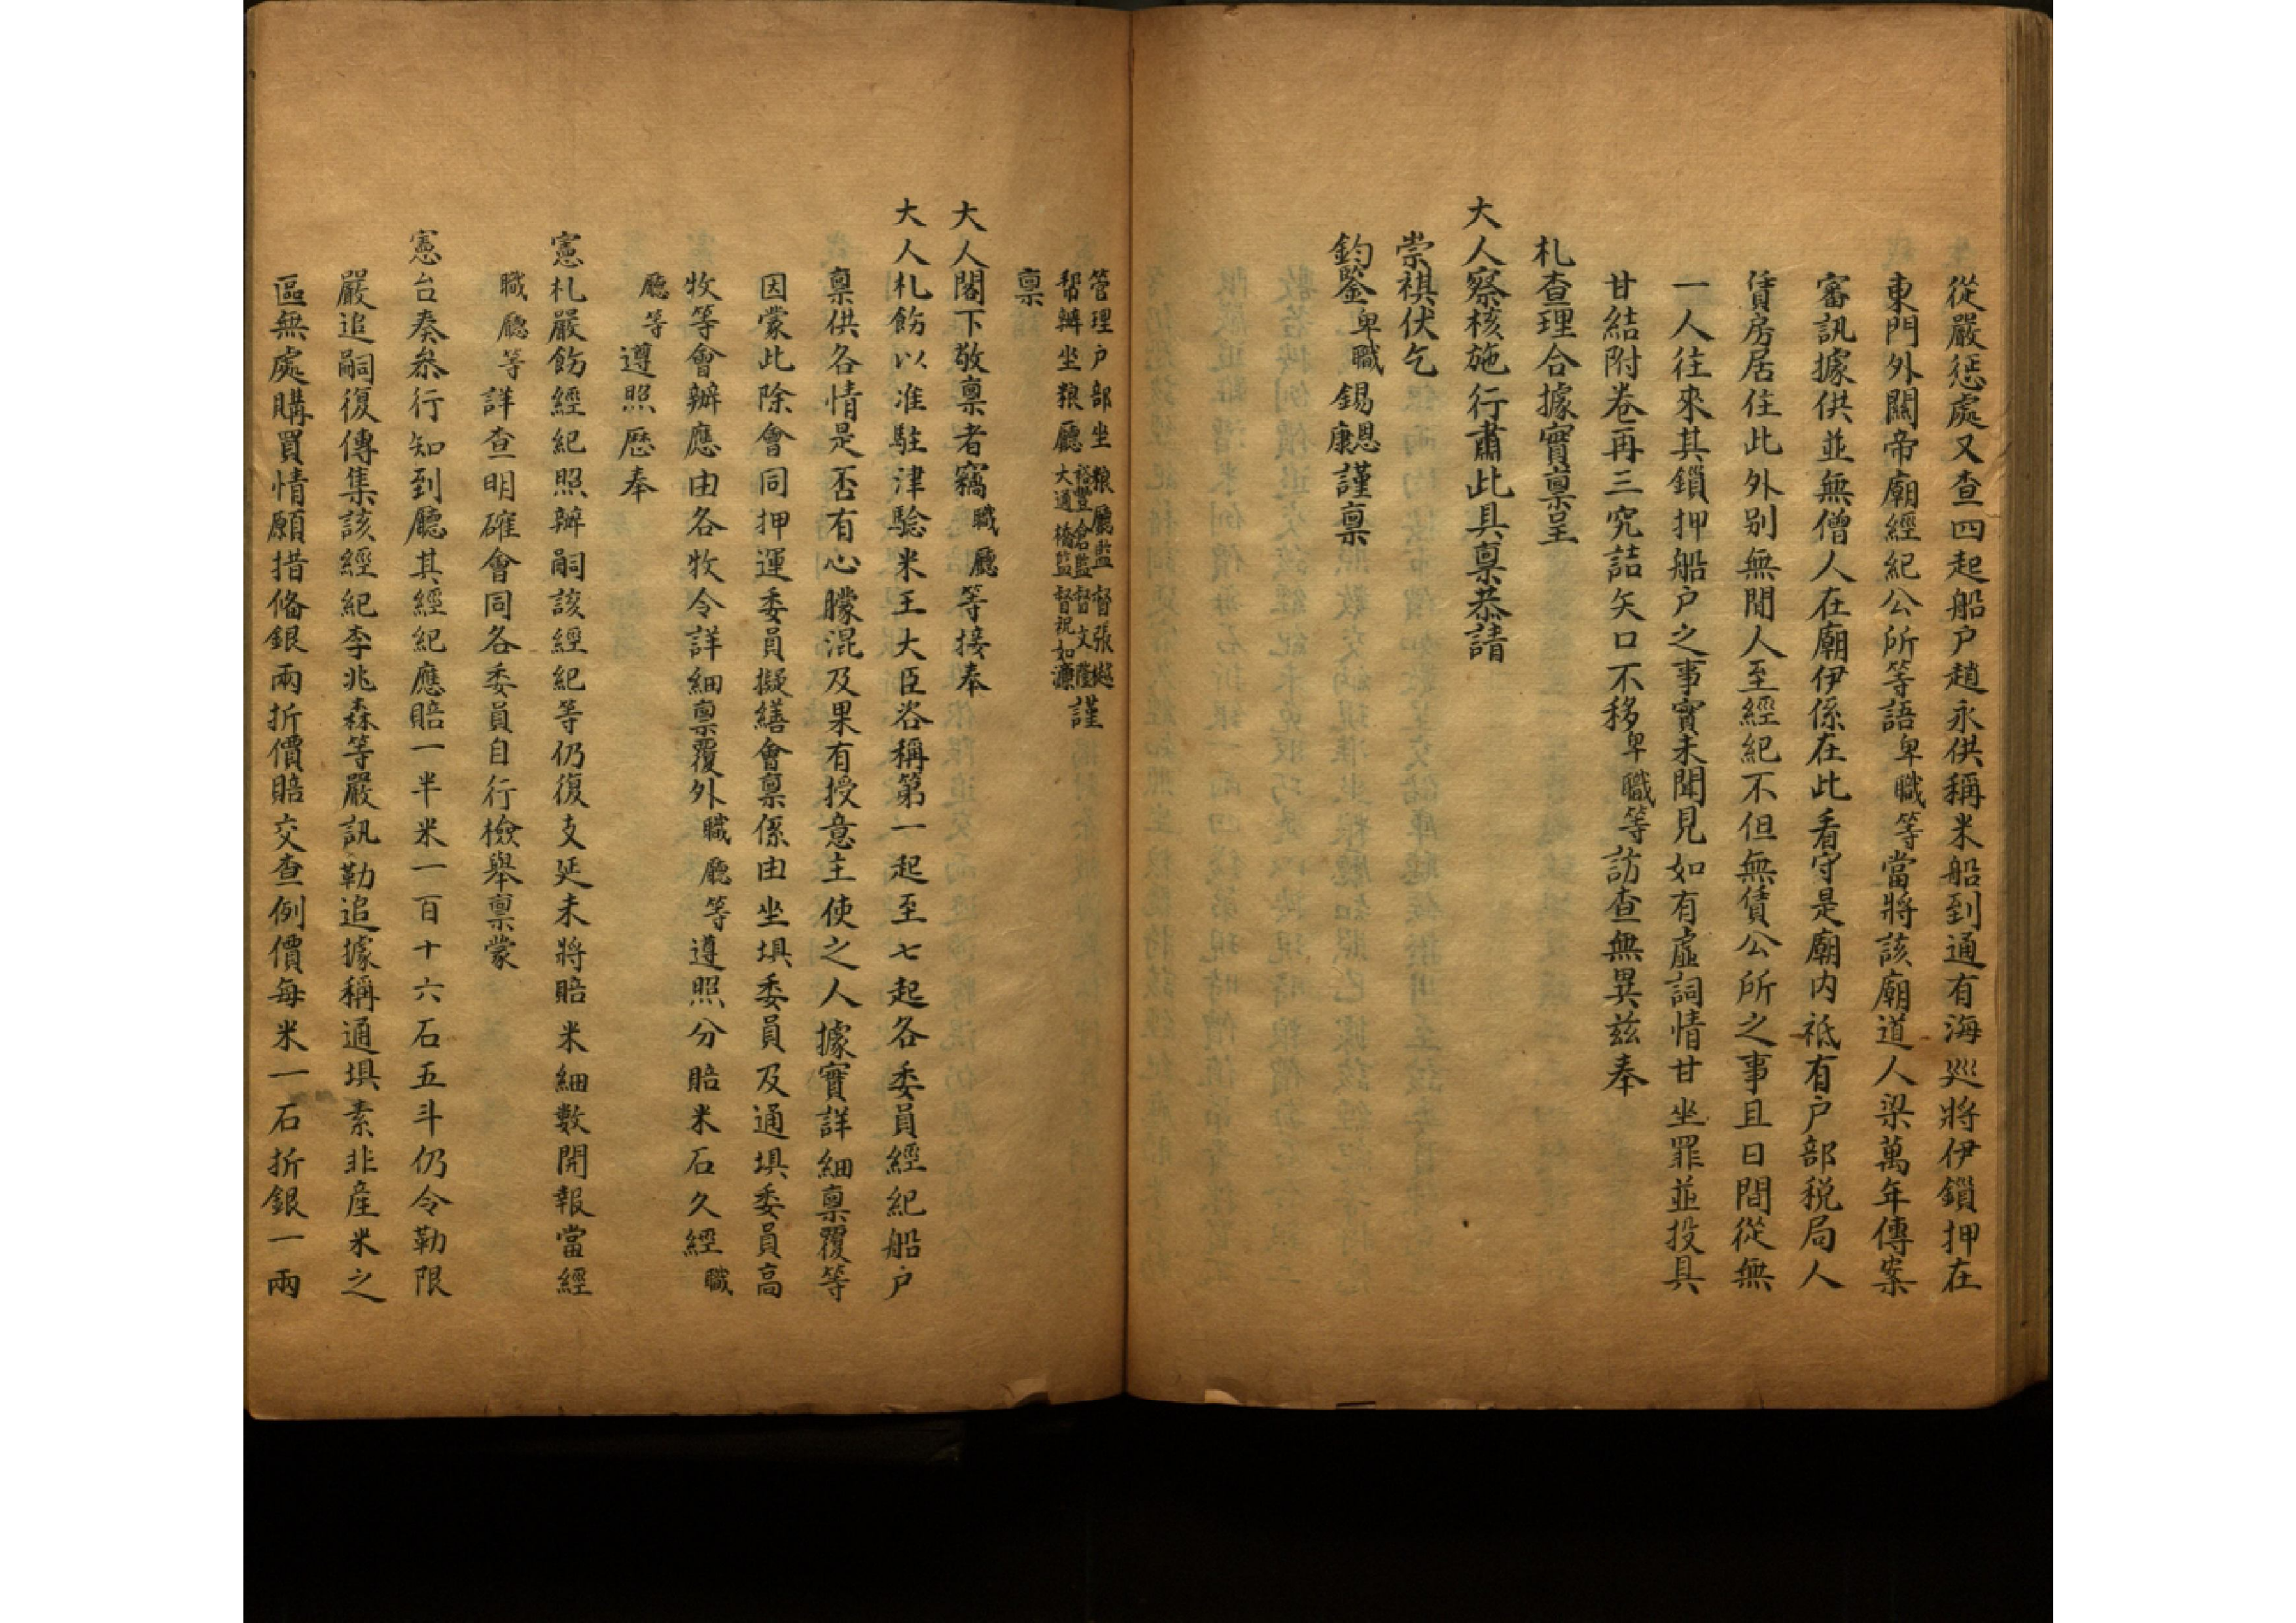 從嚴惩處又查四起船户趙永供稱米船到通有海廵將伊鎖押在
東門外關帝廟經紀公所等語卑職等當將該廟道人梁萬年傳案
審訊據供並無僧人在廟伊係在此看守是廟内祗有户部税局人
賃房居住此外别無閒人至經紀不但無賃公所之事且日間從無
一人往來其鎖押船户之事實未聞見如有虚詞情甘坐罪並投具
甘結附卷再三究詰矢口不移卑職等訪查無異兹奉
札查理合據實禀呈
大人察核施行肅此具禀恭請
崇祺伏乞
鈞鑒卑職錫恩康謹禀
管理户部坐粮廳監督張樾
幇辦坐粮廳裕豐倉監督文隆
大通橋監督祝如濂謹
禀
大人閣下敬禀者竊職廳等接奉
大人札飭以准駐津驗米王大臣咨稱第一起至七起各委員經紀船户
禀供各情是否有心朦混及果有授意主使之人據實詳細禀覆等
因蒙此除會同押運委員擬繕會禀係由坐埧委員及通埧委員高
牧等會辦應由各牧令詳細禀覆外職廳等遵照分賠米石久經職
廳等遵照歴奉
憲札嚴飭經紀照辦嗣該經紀等仍復支延未將賠米細數開報當經
職廳等詳查明確會同各委員自行檢舉禀蒙
憲台奏叅行知到廳其經紀應賠一半米一百十六石五斗仍令勒限
嚴追嗣復傳集該經紀李兆森等嚴訊勒追據稱通埧素非産米之
區無處購買情願措俻銀兩折價賠交查例價每米一石折銀一兩